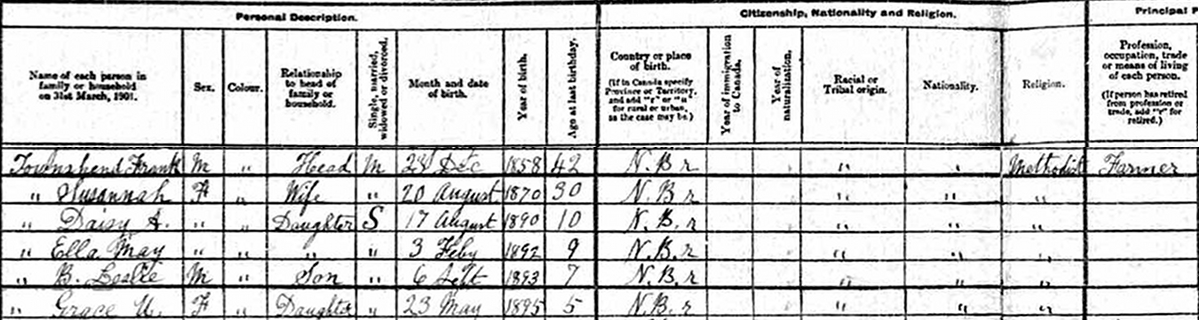 Personal Description. Citizenship, Nationality and Religion. Principal P
Name of each person in family or household on 31st March, 1901. Sex. Colour. Relationship to head of family or household. Single, married, widowed or divorced. Month and date of birth. Year of birth. Age at last birthday. Country or place of birth. (If in Canada specify Province or Territory, and add "r" or "u" for rural or urban, as the case may be.) Year of immigration to Canada. Year of naturalization. Racial or Tribal origin. Nationality. Religion. Profession, occupation, trade or means of living of each person. (If person has retired from profession or trade, add "r" for retired.)
Townshend Frank M " Head M 28 Dec 1858 42 N.B. r " " Methodist Farmer
" Susannah F " Wife " 20 August 1870 30 N.B. r " " "
" Daisy A. " " Daughter S 17 August 1890 10 N.B. r " " "
" Ella May " " " " 3 Feby 1892 9 N.B. r " " "
" B. Leslie M " Son " 6 Sept 1893 7 N.B. r " " "
" Grace U. F " Daughter " 23 May 1895 5 N.B. r " " "